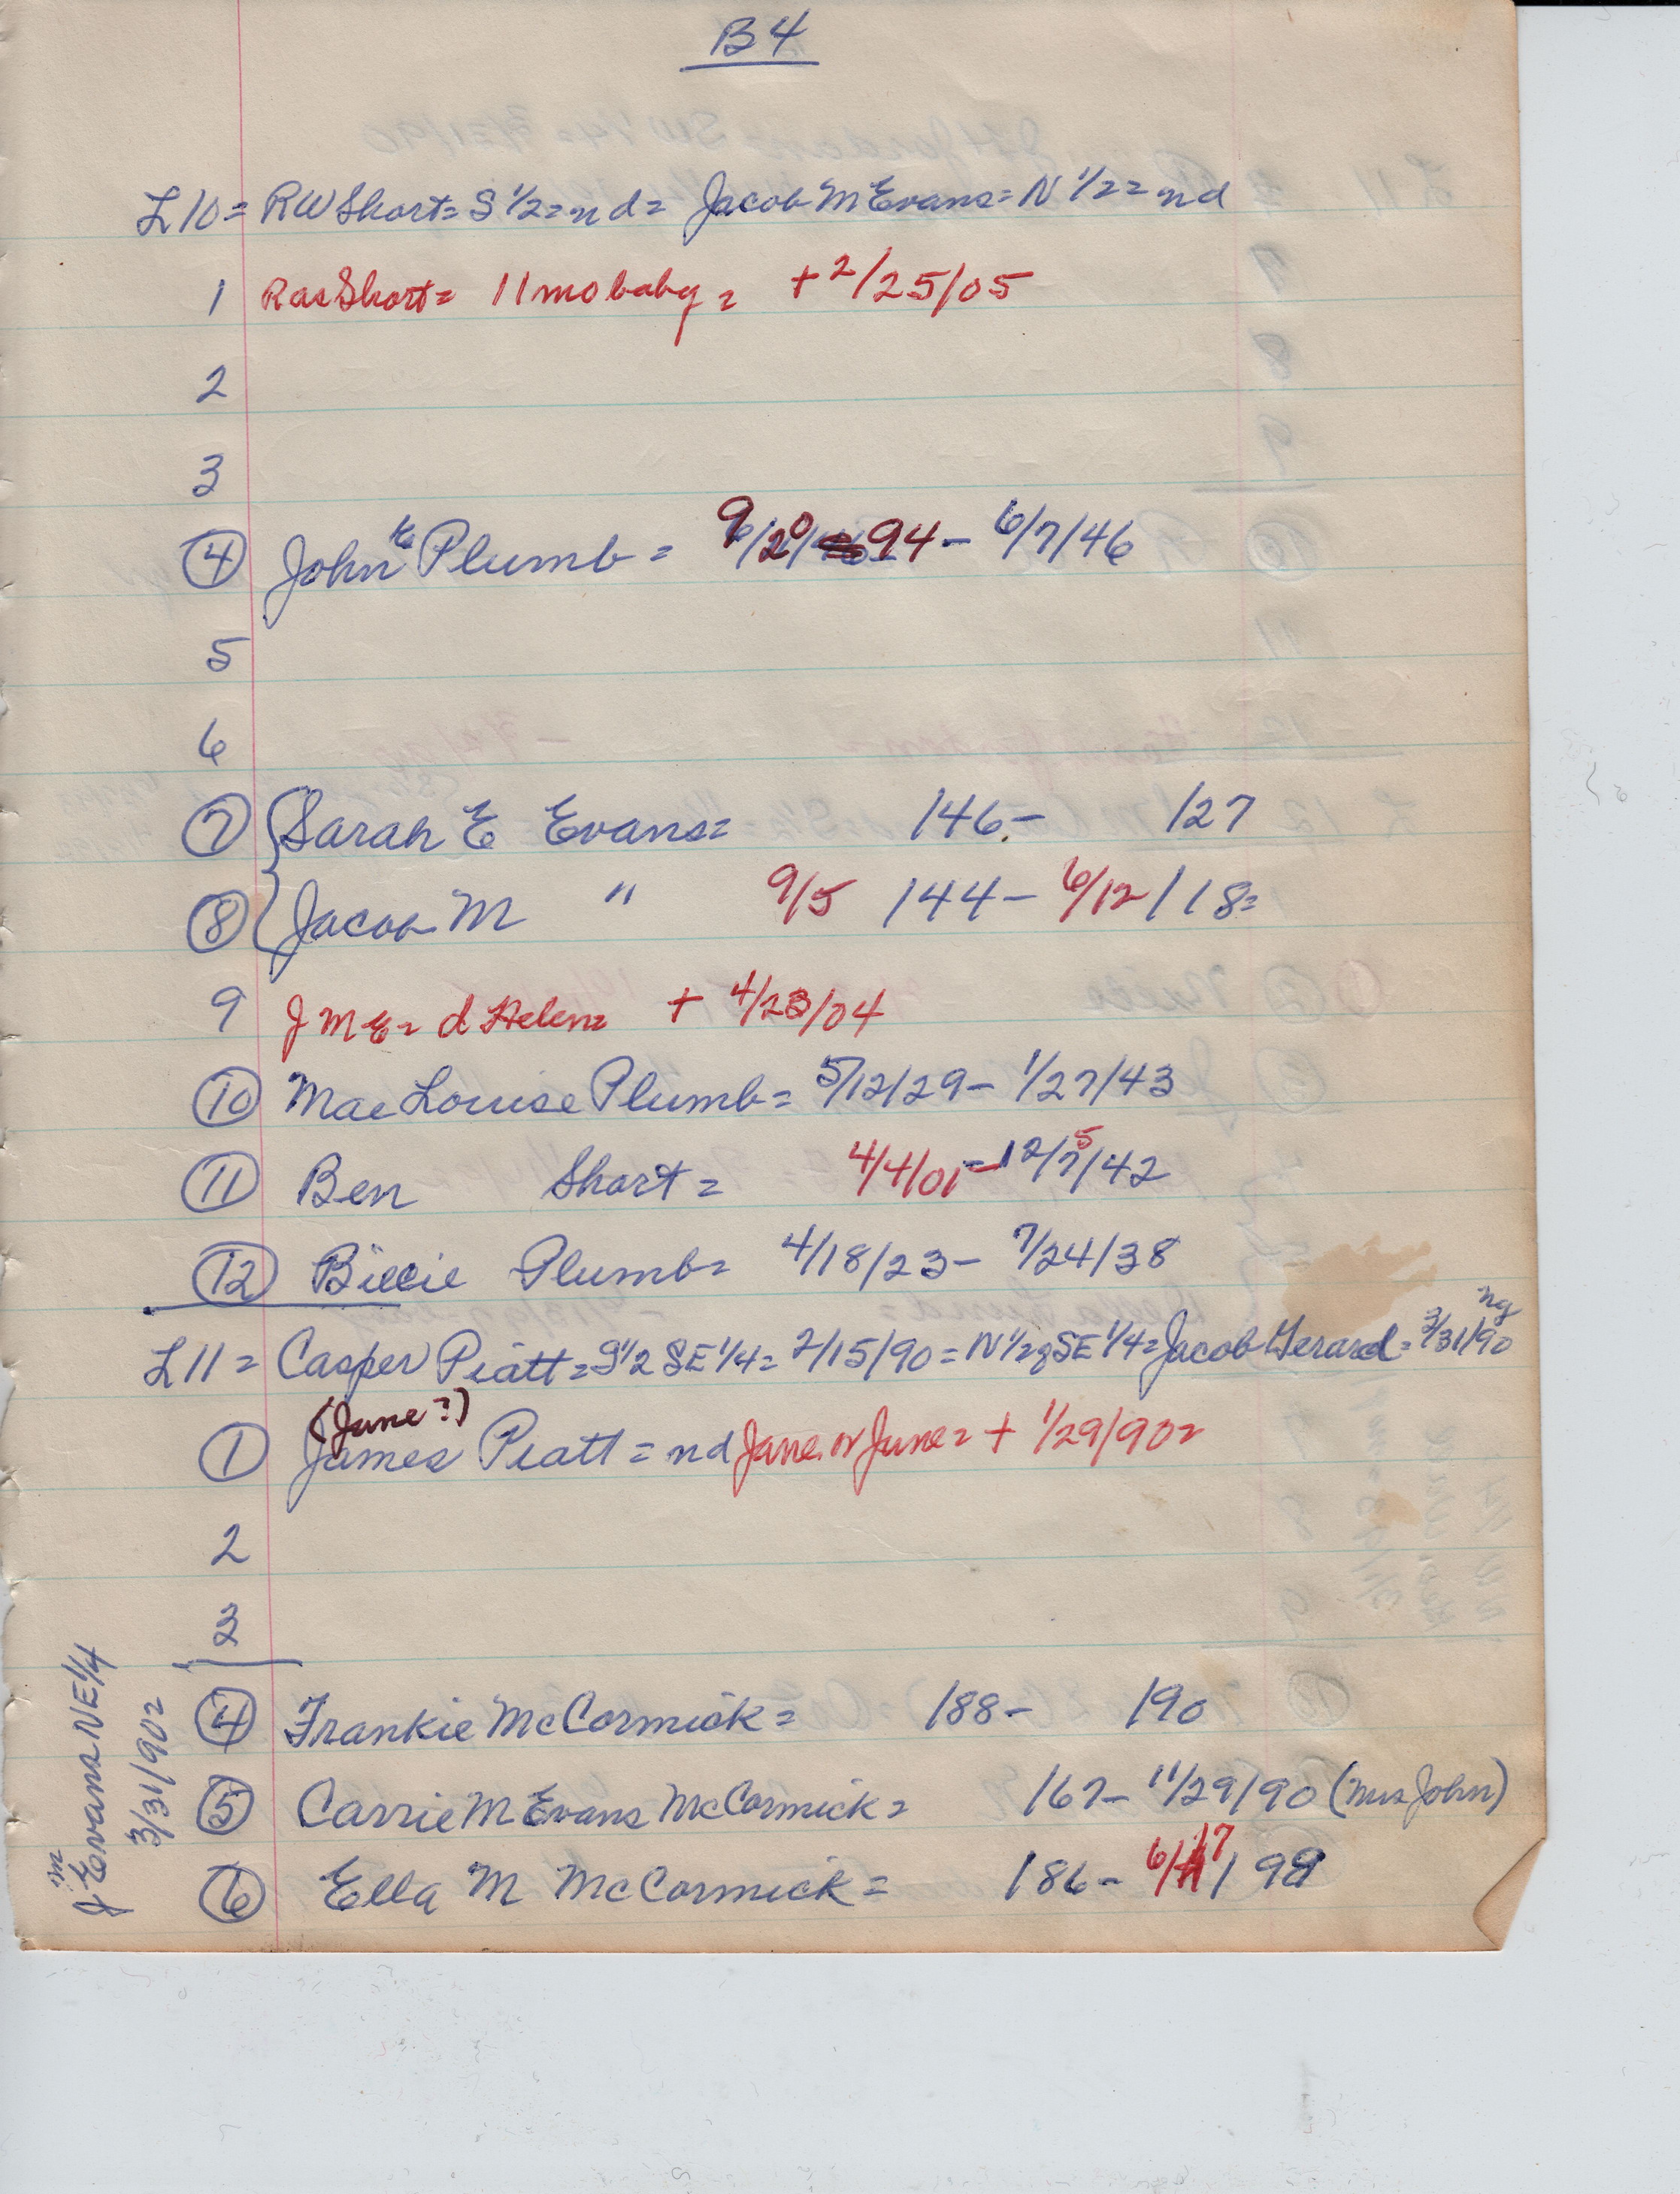 B4
L10 = RW Short = S 1/2 = nd = Jacob M Evans = N 1/2 = nd
1 Ras Short = 11 mo baby = + 2/25/05
2
3
4 John E Plumb = 9/20/94 - 6/7/46
5
6
7 Sarah E Evans = /46 - /27
8 Jacob M " 9/5 /44 - 6/12/18 =
9 J M E = d Helen = + 4/23/04
10 Mae Louise Plumb = 5/12/29 - 1/27/43
11 Ben Short = 4/4/01 - 12/5/42
12 Billie Plumb = 4/18/23 - 7/24/38
L11 = Casper Piatt = S 1/2 SE 1/4 = 2/15/90 = N 1/2 g SE 1/4 = Jacob Gerard = 3/31/90 ng
(June?)
1 James Piatt = nd Jane or June = + 1/29/90 =
2
3
4 Frankie McCormick = /88 - /90
5 Carrie M Evans McCormick = /67 - 11/29/90 (Mrs John)
6 Ella M McCormick = /86 - 6/17/98
J M Evans NE 1/4
3/31/90 =